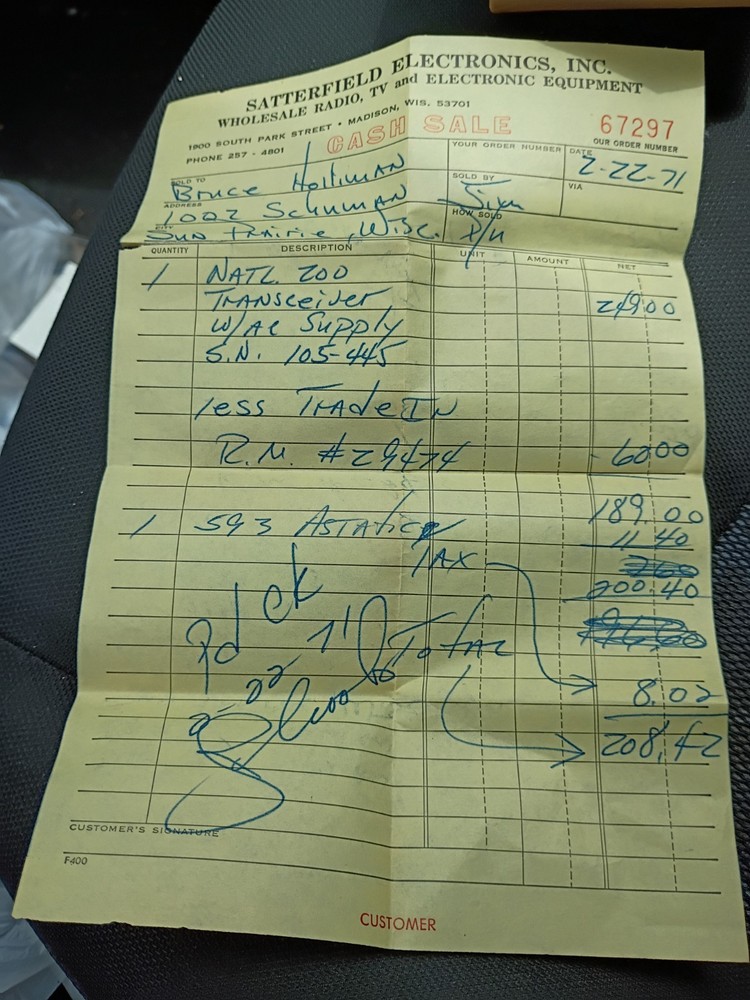 SATTERFIELD ELECTRONICS, INC.
WHOLESALE RADIO, TV and ELECTRONIC EQUIPMENT
1900 SOUTH PARK STREET • MADISON, WIS. 53701
PHONE 257 - 4801
CASH SALE
67297
OUR ORDER NUMBER
YOUR ORDER NUMBER
DATE
2-22-71
SOLD TO
Bruce
SOLD BY
Jim
VIA
ADDRESS
1002 Schuman
HOW SOLD
P/U
CITY
Sun Prairie, Wisc.
QUANTITY DESCRIPTION UNIT AMOUNT NET
1 NATL 200
Transceiver 249.00
W/AC Supply
S.N. 105-445
less Trade In
R.M. #29474 -60.00
189.00
1 593 Astatic 11.40
TAX
200.40
Pd CK
2-22 71
Total
8.02
208.42
CUSTOMER'S SIGNATURE
F400
CUSTOMER